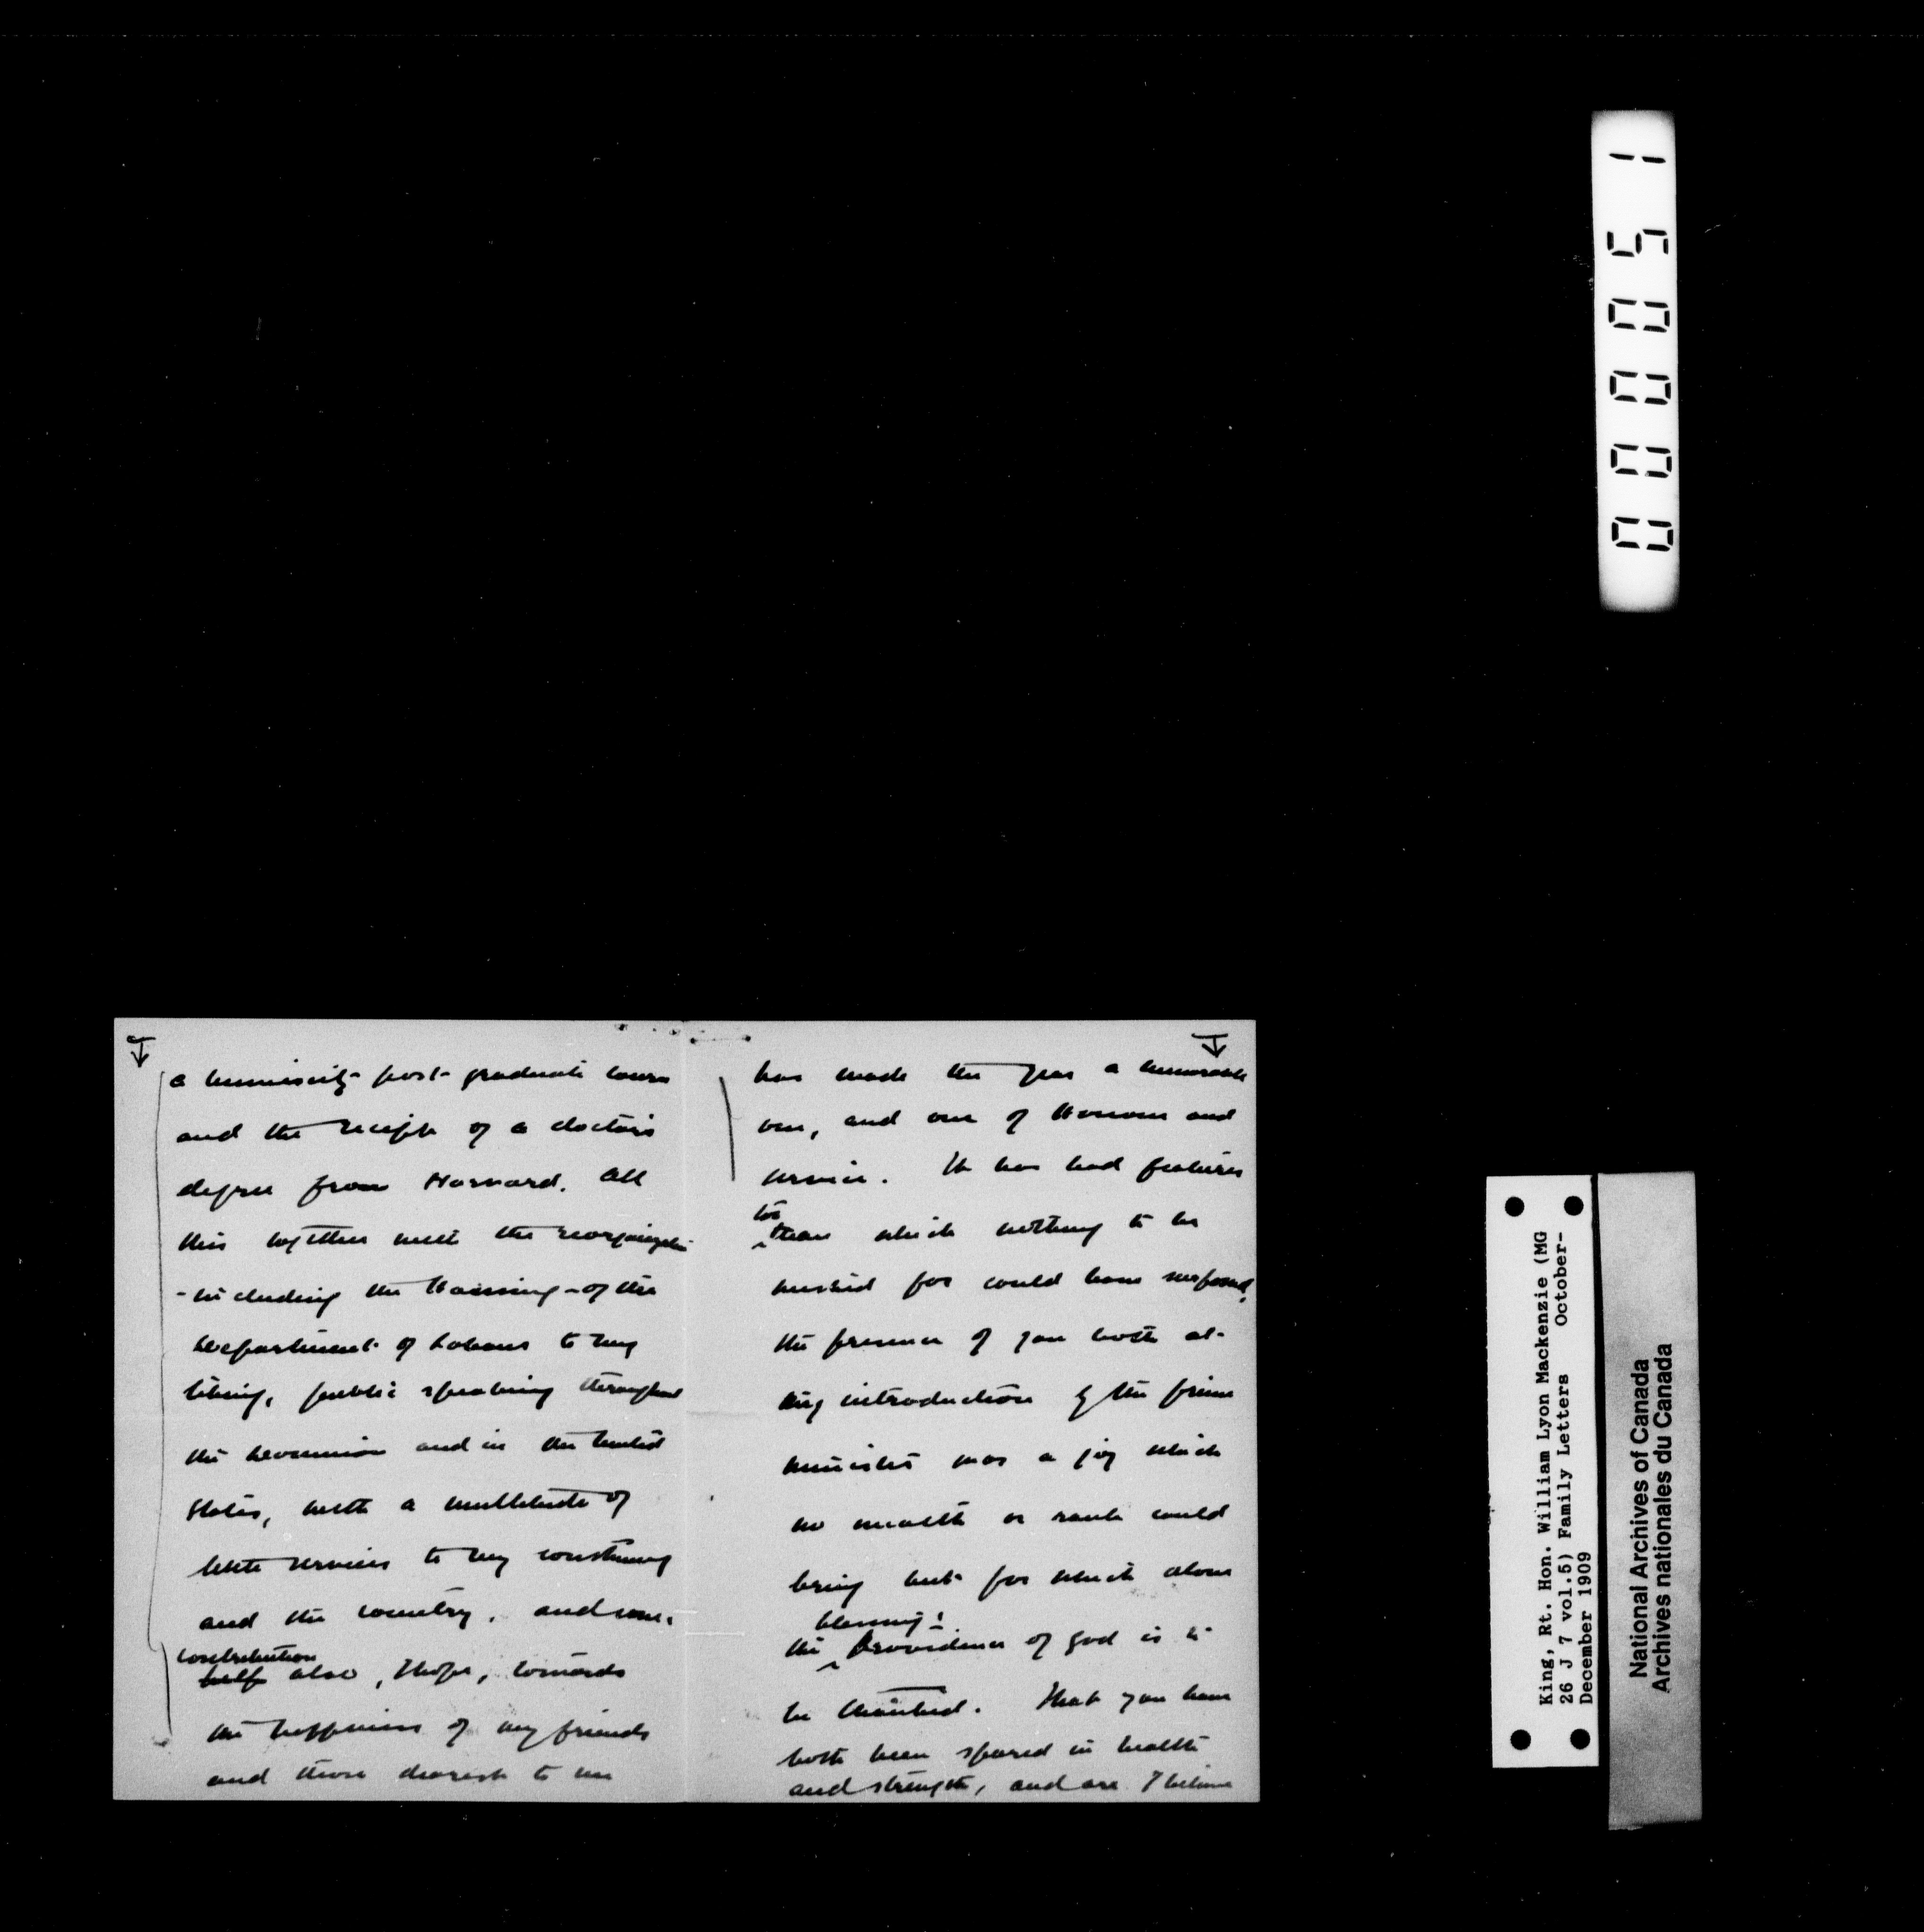 a university post-graduate course
and the receipt of a doctor's
degree from Harvard. All
this together with the reorganization
- including the Housing - of the
Department of Labour to my
liking, public speaking throughout
the Dominion and in the United
States, with a multitude of
little services to my constituency
and the country, and some
contribution
help also, I hope, towards
the happiness of my friends
and those dearest to me
has made the year a memorable
one, and one of Honour and
service. It has had features
too
than which nothing to be
wished for could have surpassed,
the presence of you both at
my introduction by the prime
minister was a joy which
no wealth or rank could
bring but for which alone
blessing &
the Providence of God is to
be thanked. That you have
both been spared in health
and strength, and are I believe
000051
King, Rt. Hon. William Lyon Mackenzie (MG
26 J 7 vol.5) Family Letters October-
December 1909
National Archives of Canada
Archives nationales du Canada